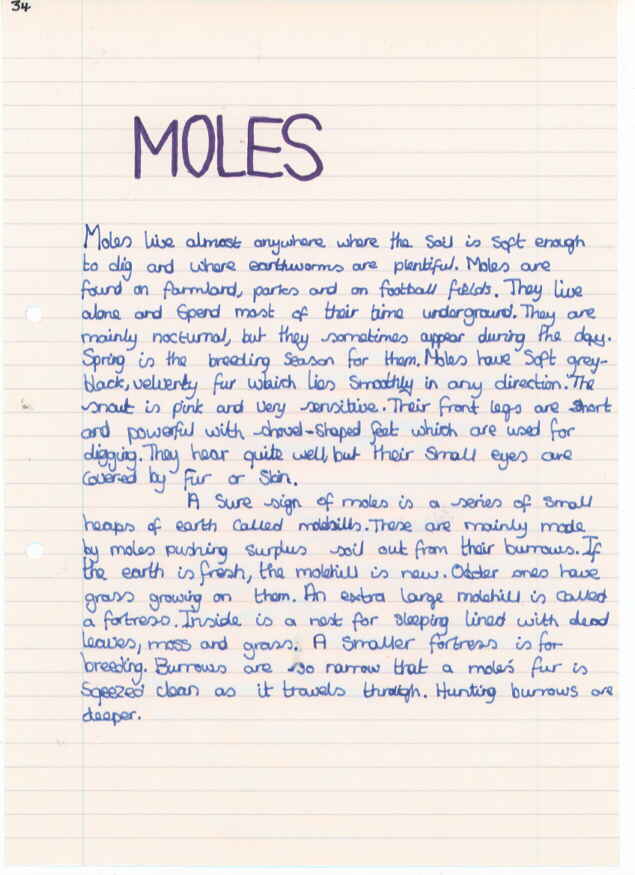 34
MOLES
Moles live almost anywhere where the soil is soft enough
to dig and where earthworms are plentiful. Moles are
found on farmland, parks and on football fields. They live
alone and spend most of their time underground. They are
mainly nocturnal, but they sometimes appear during the day.
Spring is the breeding season for them. Moles have soft grey-
black, velventy fur which lies smoothly in any direction. The
snout is pink and very sensitive. Their front legs are short
and powerful with shovel-shaped feet which are used for
digging. They hear quite well, but their small eyes are
covered by fur or skin.
A sure sign of moles is a series of small
heaps of earth called molehills. These are mainly made
by moles pushing surplus soil out from their burrows. If
the earth is fresh, the molehill is new. Odder ones have
grass growing on them. An extra large molehill is called
a fortress. Inside is a nest for sleeping lined with dead
leaves, moss and grass. A smaller fortress is for
breeding. Burrows are so narrow that a mole's fur is
sqeezed clean as it travels through. Hunting burrows are
deeper.